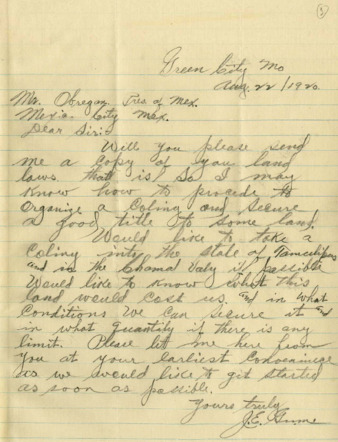 Green City Mo
Aug. 22/1920.
Mr. Obregan Pres of Mex.
Mexico City Mex.
Dear Sir:
Will you please send
me a Copy of you land
laws. that is So I may
Know how to procede to
Organize a Coliny and secure
a good title to some land.
Would like to take a
Coliny into the state of Tamaulipas
and in the Chamal Valy if possible
Would like to know what this
land would Cost us. and in what
Conditions we can secure it and
in what quantity if there is any
limit. Please let me here from
you at your earliest
as we would like to get started
as soon as possible.
Yours truly
J.E.